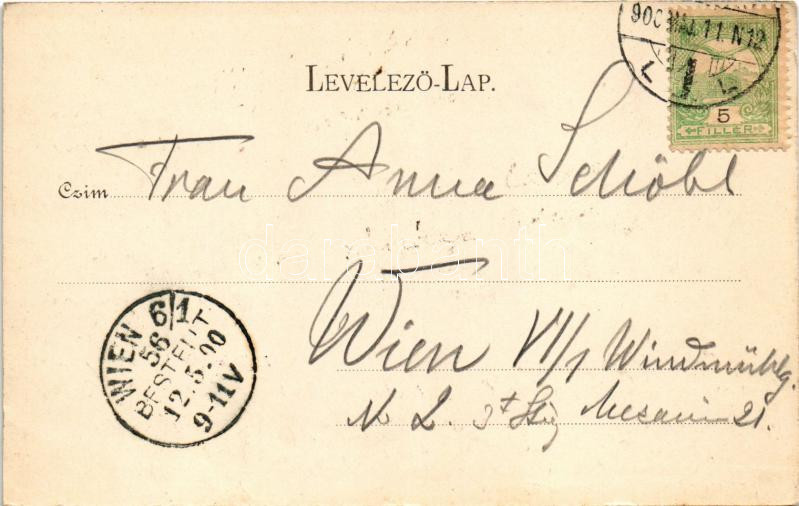 900 MAJ. 11. N12
5
FILLÉR
LEVELEZŐ-LAP.
Czim Frau Anna Schöbl
Wien VI/1 Windmühlg.
N 2. 3t Stg Mezanin 21.
WIEN 6/1
56
BESTELLT
12.5.00
9-11V
darabanth